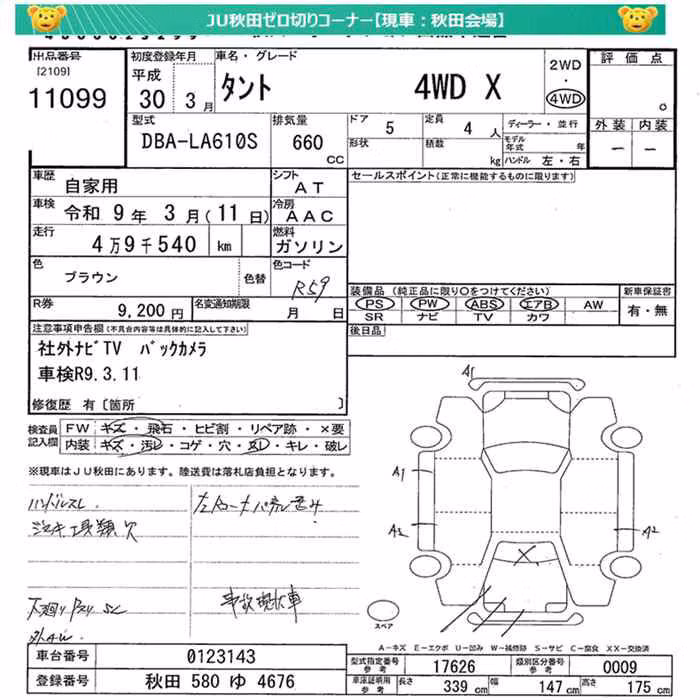 JU秋田ゼロ切りコーナー【現車：秋田会場】
出品番号
[2109]
11099
初度登録年月
平成
30 3月
車名・グレード
タント 4WD X
2WD
・
4WD
評価点
外装 内装
－ －
型式
DBA-LA610S
排気量
660
CC
ドア 5
形状
定員 4 人
積数 kg
ディーラー・並行
モデル年式 年
ハンドル 左・右
車歴
自家用
シフト
AT
車検
令和 9年 3月(11日)
冷房
AAC
走行
4万9千540 km
燃料
ガソリン
色
ブラウン
色替
色コード
R59
R券
9,200円
名変通知期限
月 日
セールスポイント(正常に機能するものに限ります)
装備品 (純正品に限り○をつけてください)
PS PW ABS エアB AW
SR ナビ TV カワ
新車保証書
有・無
後日品
注意事項申告欄(不具合内容等は具体的に記入して下さい)
社外ナビTV バックカメラ
車検R9.3.11
修復歴 有[箇所 ]
検査員
記入欄
FW キズ・飛石・ヒビ割・リペア跡・×要
内装 キズ・汚レ・コゲ・穴・スレ・キレ・破レ
※現車はJU秋田にあります。陸送費は落札店負担となります。
ハンドルスレ
ジャッキ工具類欠
下廻りサビ
A1
A1
A2
A2
スペア
A－キズ E－エクボ U－凹み W－補修跡 S－サビ C－腐食 XX－交換済
車台番号 0123143
登録番号 秋田 580 ゆ 4676
型式指定番号
参考
17626
類別区分番号
参考
0009
車庫証明用
参考
長さ 339 cm 幅 147 cm 高さ 175 cm